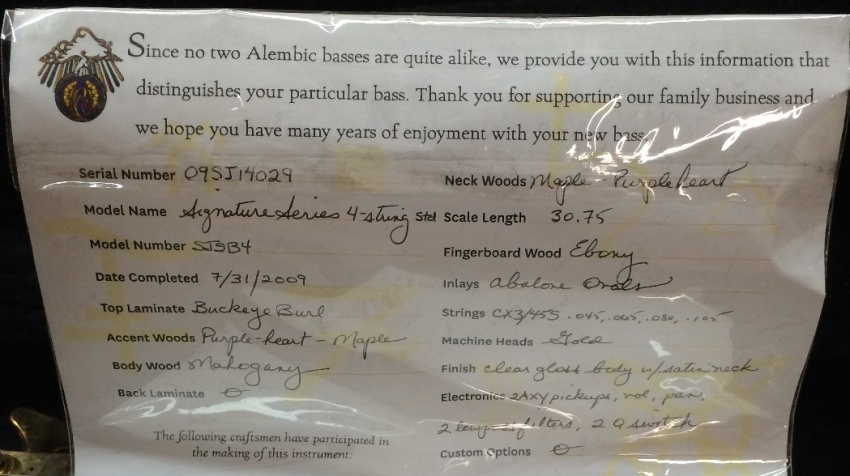 Since no two Alembic basses are quite alike, we provide you with this information that
distinguishes your particular bass. Thank you for supporting our family business and
we hope you have many years of enjoyment with your new bass
Serial Number 09SJ14029
Model Name Signature Series 4-string Std
Model Number SJSB4
Date Completed 7/31/2009
Top Laminate Buckeye Burl
Accent Woods Purple-heart - Maple
Body Wood Mahogany
Back Laminate
The following craftsmen have participated in
the making of this instrument:
Neck Woods Maple - Purpleheart
Scale Length 30.75
Fingerboard Wood Ebony
Inlays abalone Ovals
Strings CX3/45S .045, .065, .080, .105
Machine Heads Gold
Finish clear gloss body w/satin neck
Electronics 2AXY pickups, vol, pan,
2 filters, 2 Q switch
Custom Options